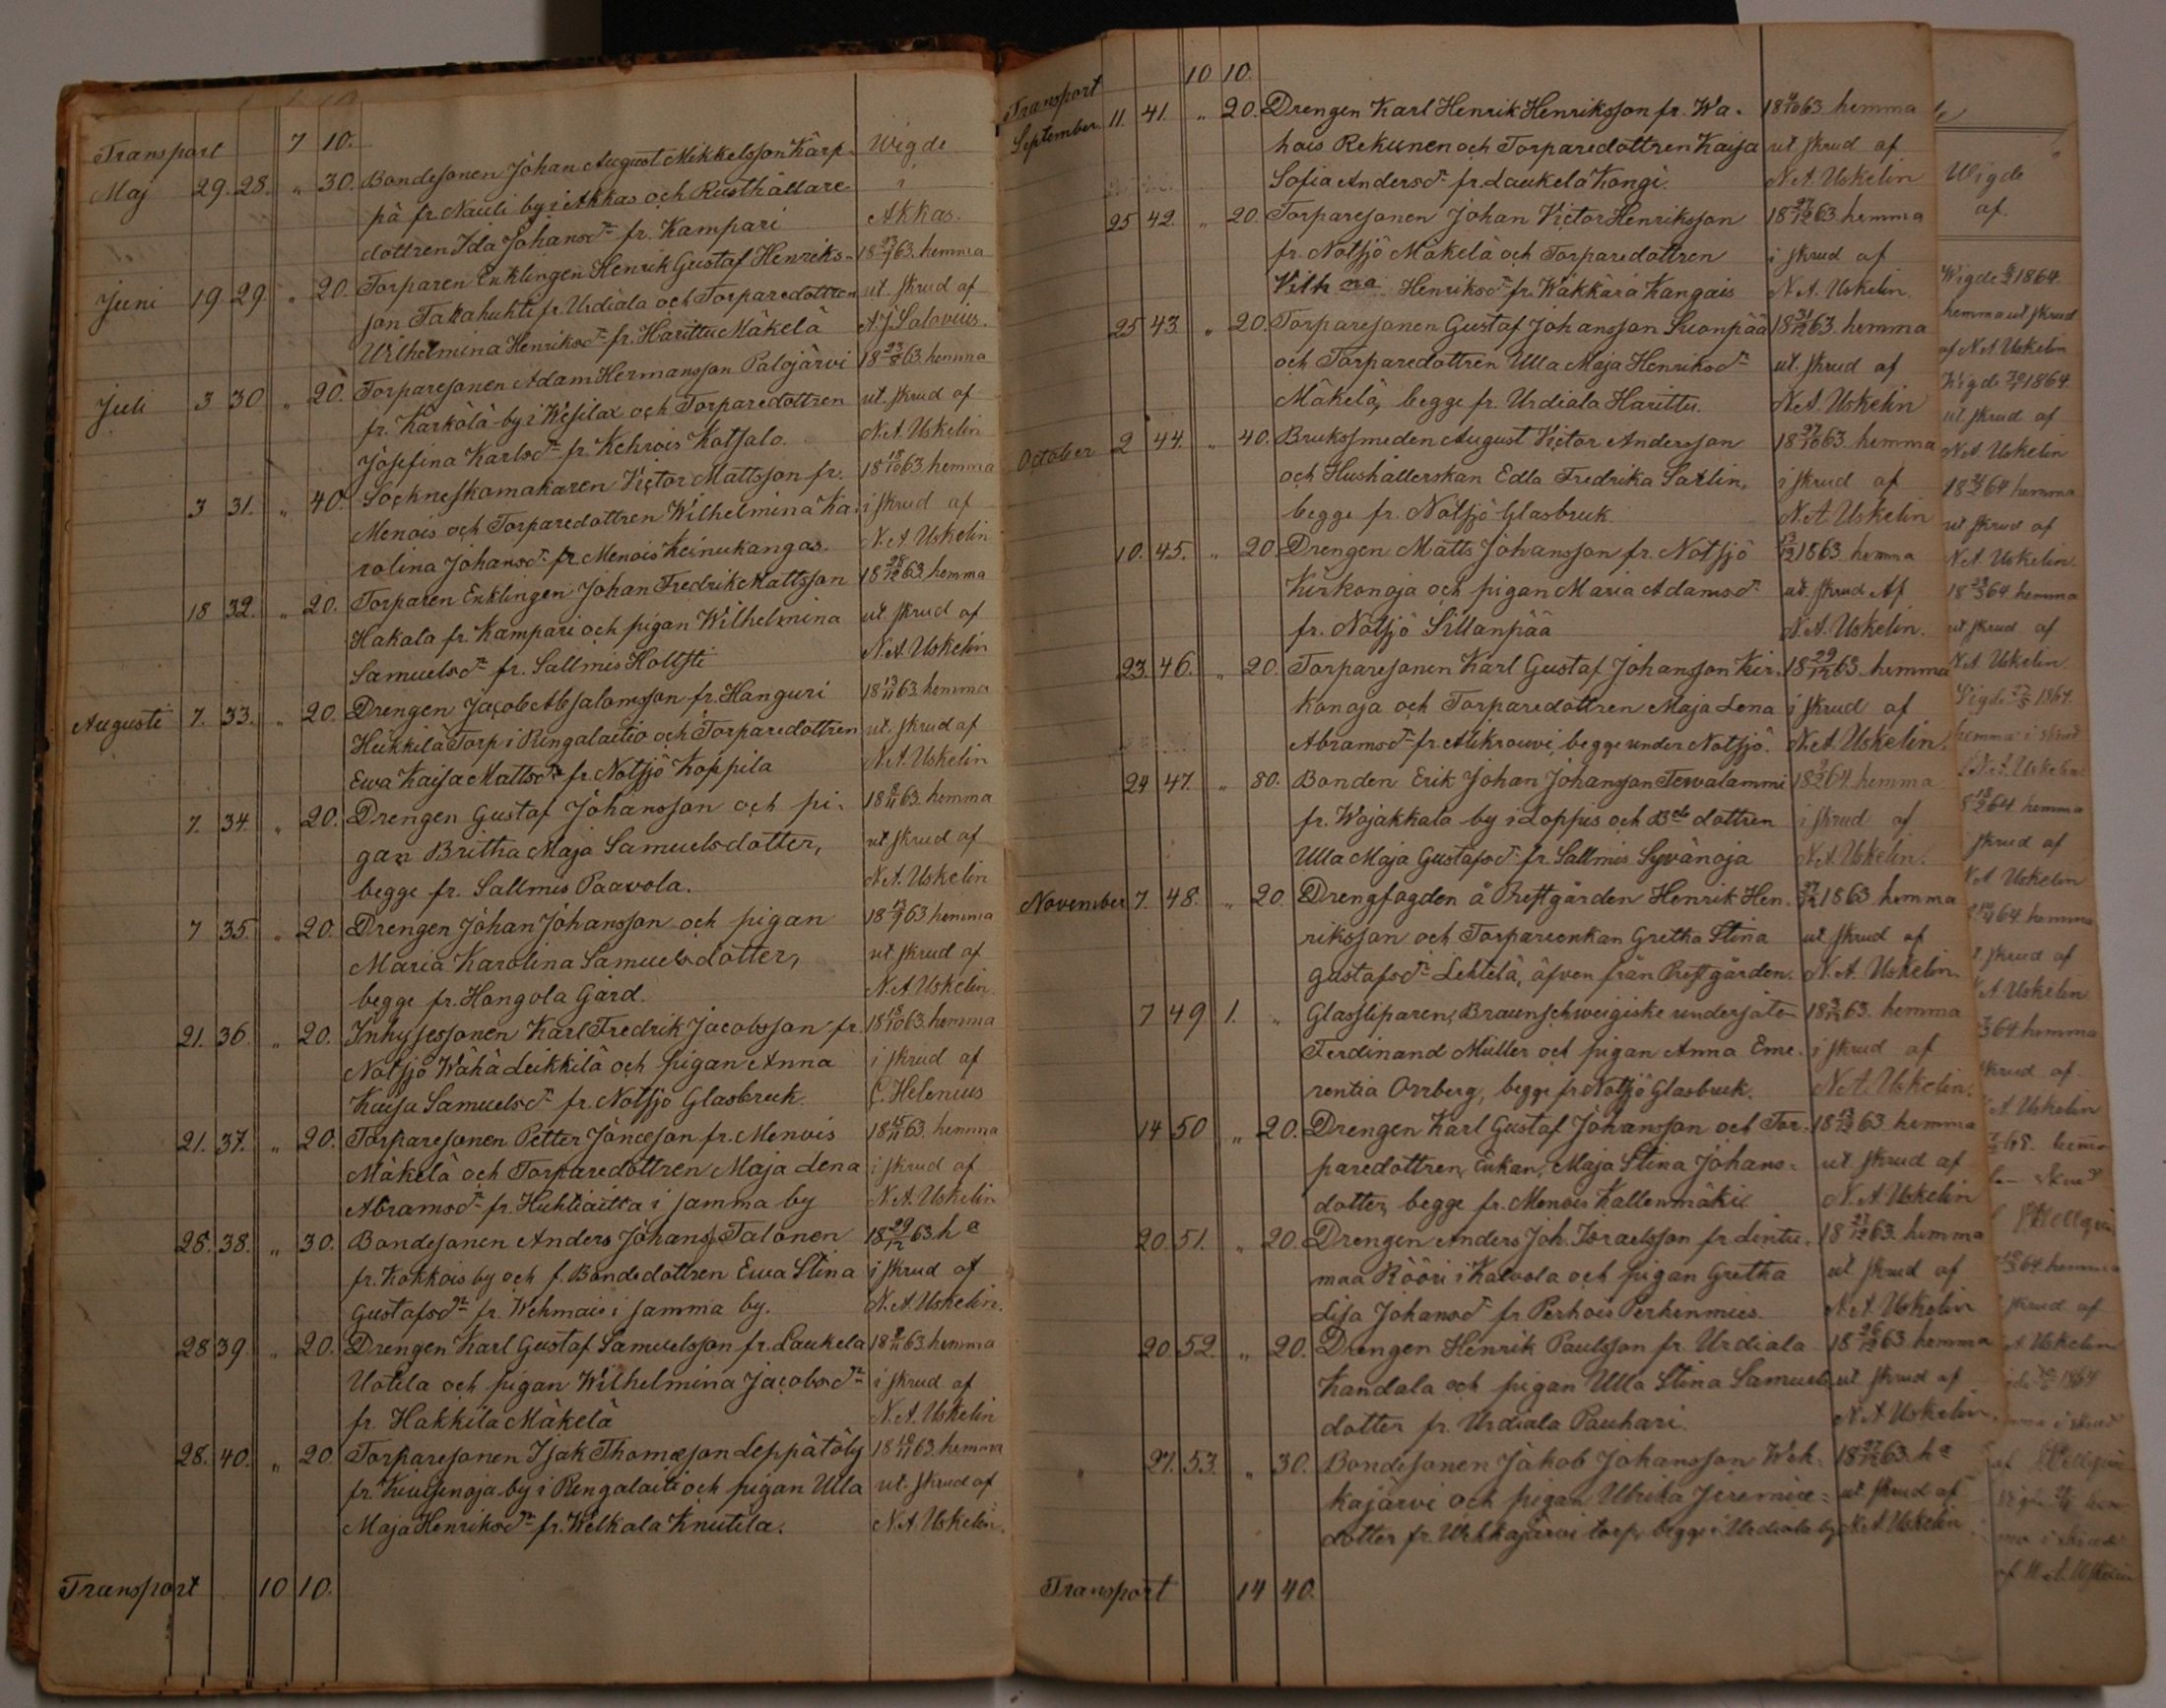 Transport 7 10.
Maj 29. 28. " 30. Bondesonen Johan August Mikkelsson Karp- Wigde
pä fr Nauli by i Akkas och Rusthållare- i
dottren Ida Johansdr fr. Kampari Akkas.
Juni 19 29. " 20. Torparen Enklingen Henrik Gustaf Henriks- 18 23/7 63. hemma
son Takahuhti fr. Urdiala och Torparedottren ut. skrud af
Wilhelmina Henriksdr fr. Harittu Mäkelä A.J. Salovius.
Juli 3 30 " 20. Torparesonen Adam Hermansson Palojärvi 18 23/8 63 hemma
fr. Kärkölä by i Wesilax och Torparedottren ut. skrud af
Josefina Karlsdr fr. Kehrois Kotsalo. N.A. Uskelin
3 31. " 40. Sockneskomakaren Victor Mattsson fr. 18 18/10 63 hemma
Menois och Torparedottren Wilhelmina Ka- i skrud af
rolina Johansdr fr. Menois Keinukangas. N.A. Uskelin
18 32. " 20. Torparen Enklingen Johan Fredrik Mattsson 18 28/12 63. hemma
Hakala fr. Kampari och pigan Wilhelmina ut skrud af
Samuelsdr fr. Sallmis Holtsti N.A. Uskelin
Augusti 7. 33. " 20. Drengen Jacob Absalomsson fr. Hanguri 18 13/11 63. hemma
Heikkilä Torp i Rengalaitio och Torparedottren ut. skrud af
Ewa Kaisa Mattsdr fr. Notsjö Koppila N.A. Uskelin
7. 34. " 20. Drengen Gustaf Johansson och pi- 18 8/11 63. hemma
gan Britha Maja Samuelsdotter, ut skrud af
begge fr. Sallmis Paavola. N.A. Uskelin
7 35. " 20. Drengen Johan Johansson och pigan 18 13/9 63 hemma
Maria Karolina Samuelsdotter, ut. skrud af
begge fr. Hongola Gård. N.A. Uskelin.
21. 36. " 20. Inhysessonen Karl Fredrik Jacobsson fr. 18 18/10 63. hemma
Notsjö Wähä Leikkilä och pigan Anna i skrud af
Kaisa Samuelsdr fr. Notsjö Glasbruk. C. Helenius
21. 37. " 20. Torparesonen Petter Jonæson fr. Menois 18 15/11 63. hemma
Mäkelä och Torparedottren Maja Lena i skrud af
Abramsdr fr. Huhtiaitta i samma by N.A. Uskelin
28. 38. " 30. Bondesonen Anders Johanss. Talonen 18 29/12 63. ha
fr. Kokkois by och f. Bondedottren Ewa Stina i skrud af
Gustafsdr fr. Wehmais i samma by. N.A. Uskelin.
28 39. " 20. Drengen Karl Gustaf Samuelsson fr. Laukela 18 8/11 63. hemma
Uotila och pigan Wilhelmina Jacobsdr i skrud af
fr. Hakkila Mäkelä N.A. Uskelin
28. 40. " 20. Torparesonen Isak Thomæson Leppätöly 18 10/11 63. hemma
fr. Kiusenoja by i Rengalaiti och pigan Ulla ut. skrud af
Maja Henriksdr fr. Wälkala Knutila. N.A. Uskelin.
Transport 10 10.
Transport 10 10.
September. 11. 41. " 20. Drengen Karl Henrik Henriksson fr. Wa- 18 4/10 63 hemma
hois Rekunen och Torparedottren Kaisa ut skrud af
Sofia Andersdr fr. Laukela Kongi. N.A. Uskelin
25 42. " 20. Torparesonen Johan Victor Henriksson 18 27/12 63. hemma
fr. Notsjö Mäkelä och Torparedottren i skrud af
Vilhna Henriksdr fr. Wäkkärä Kangais N.A. Uskelin.
25 43. " 20. Torparesonen Gustaf Johansson Suonpää 18 31/12 63. hemma
och Torparedottren Ulla Maja Henriksdr ut. skrud af
Mäkelä, begge fr. Urdiala Harittu. N.A. Uskelin
October 2 44. " 40. Brukssmeden August Victor Andersson 18 27/10 63. hemma
och Hushållerskan Edla Fredrika Saxlin, i skrud af
begge fr. Notsjö Glasbruk. N.A. Uskelin
10. 45. " 20 Drengen Matts Johansson fr. Notsjö 13/12 1863. hemma
Kirkonoja och pigan Maria Adamsdr ut. skrud Af
fr. Notsjö Sillanpää N.A. Uskelin.
23. 46. " 20. Torparesonen Karl Gustaf Johansson Kir- 18 29/12 63. hemma
konoja och Torparedottren Maja Lena i skrud af
Abramsdr fr. Alikrouvi, begge under Notsjö. N.A. Uskelin.
24 47. " 80. Bonden Erik Johan Johansson Terwalammi 18 2/2 64 hemma
fr. Wojakkala by i Loppis och Bde dottren i skrud af
Ulla Maja Gustafsdr fr. Sallmis Syvänoja N.A. Uskelin.
November 7. 48. " 20. Drengfogden å Prestgården Henrik Hen- 27/12 1863 hemma
riksson och Torpareenkan Gretha Stina ut skrud af
Gustafsdr Lehtelä, äfven från Prestgården. N.A. Uskelin.
7 49 1. " Glassliparen, Braunschweigiske undersåten 18 3/12 63. hemma
Ferdinand Müller och pigan Anna Eme- i skrud af
rentia Orrberg, begge fr Notsjö Glasbruk. N.A. Uskelin.
14 50 " 20. Drengen Karl Gustaf Johansson och Tor- 18 13/12 63 hemma
paredottren, Enkan, Maja Stina Johans- ut skrud af
dotter, begge fr. Menois Kallenmäki N.A. Uskelin
20. 51. " 20. Drengen Anders Joh. Israelsson fr. Lintu- 18 27/12 63. hemma
maa Rööri i Kalvola och pigan Gretha ut skrud af
Lisa Johansdr fr Perhois Perhenmies. N.A. Uskelin
20 52. " 20. Drengen Henrik Paulsson fr. Urdiala 18 26/12 63 hemma
Kandala och pigan Ulla Stina Samuels ut skrud af
dotter fr. Urdiala Pauhari. N.A. Uskelin.
" 27. 53. " 30. Bondesonen Jakob Johansson Weh- 18 27/12 63. ha
kajärvi och pigan Ulrika Jeremiæ- ut skrud af
dotter fr. Wehkajärvi torp, begge i Urdiala by N.A. Uskelin
Transport 14 40.
Wigde
af
Wigde 1864.
hemma ut skrud
af N.A. Uskelin
Wigde 1864.
ut skrud af
N.A. Uskelin
64 hemma
ut skrud af
N.A. Uskelin.
64 hemma
ut skrud af
N.A. Uskelin
1864.
hemma i skrud
N.A. Uskelin
64. hemma
skrud af
Uskelin
64 hemma
skrud af
A. Uskelin
64 hemma
skrud af
A. Uskelin
64 hemma
skrud af
A. Uskelin
1864